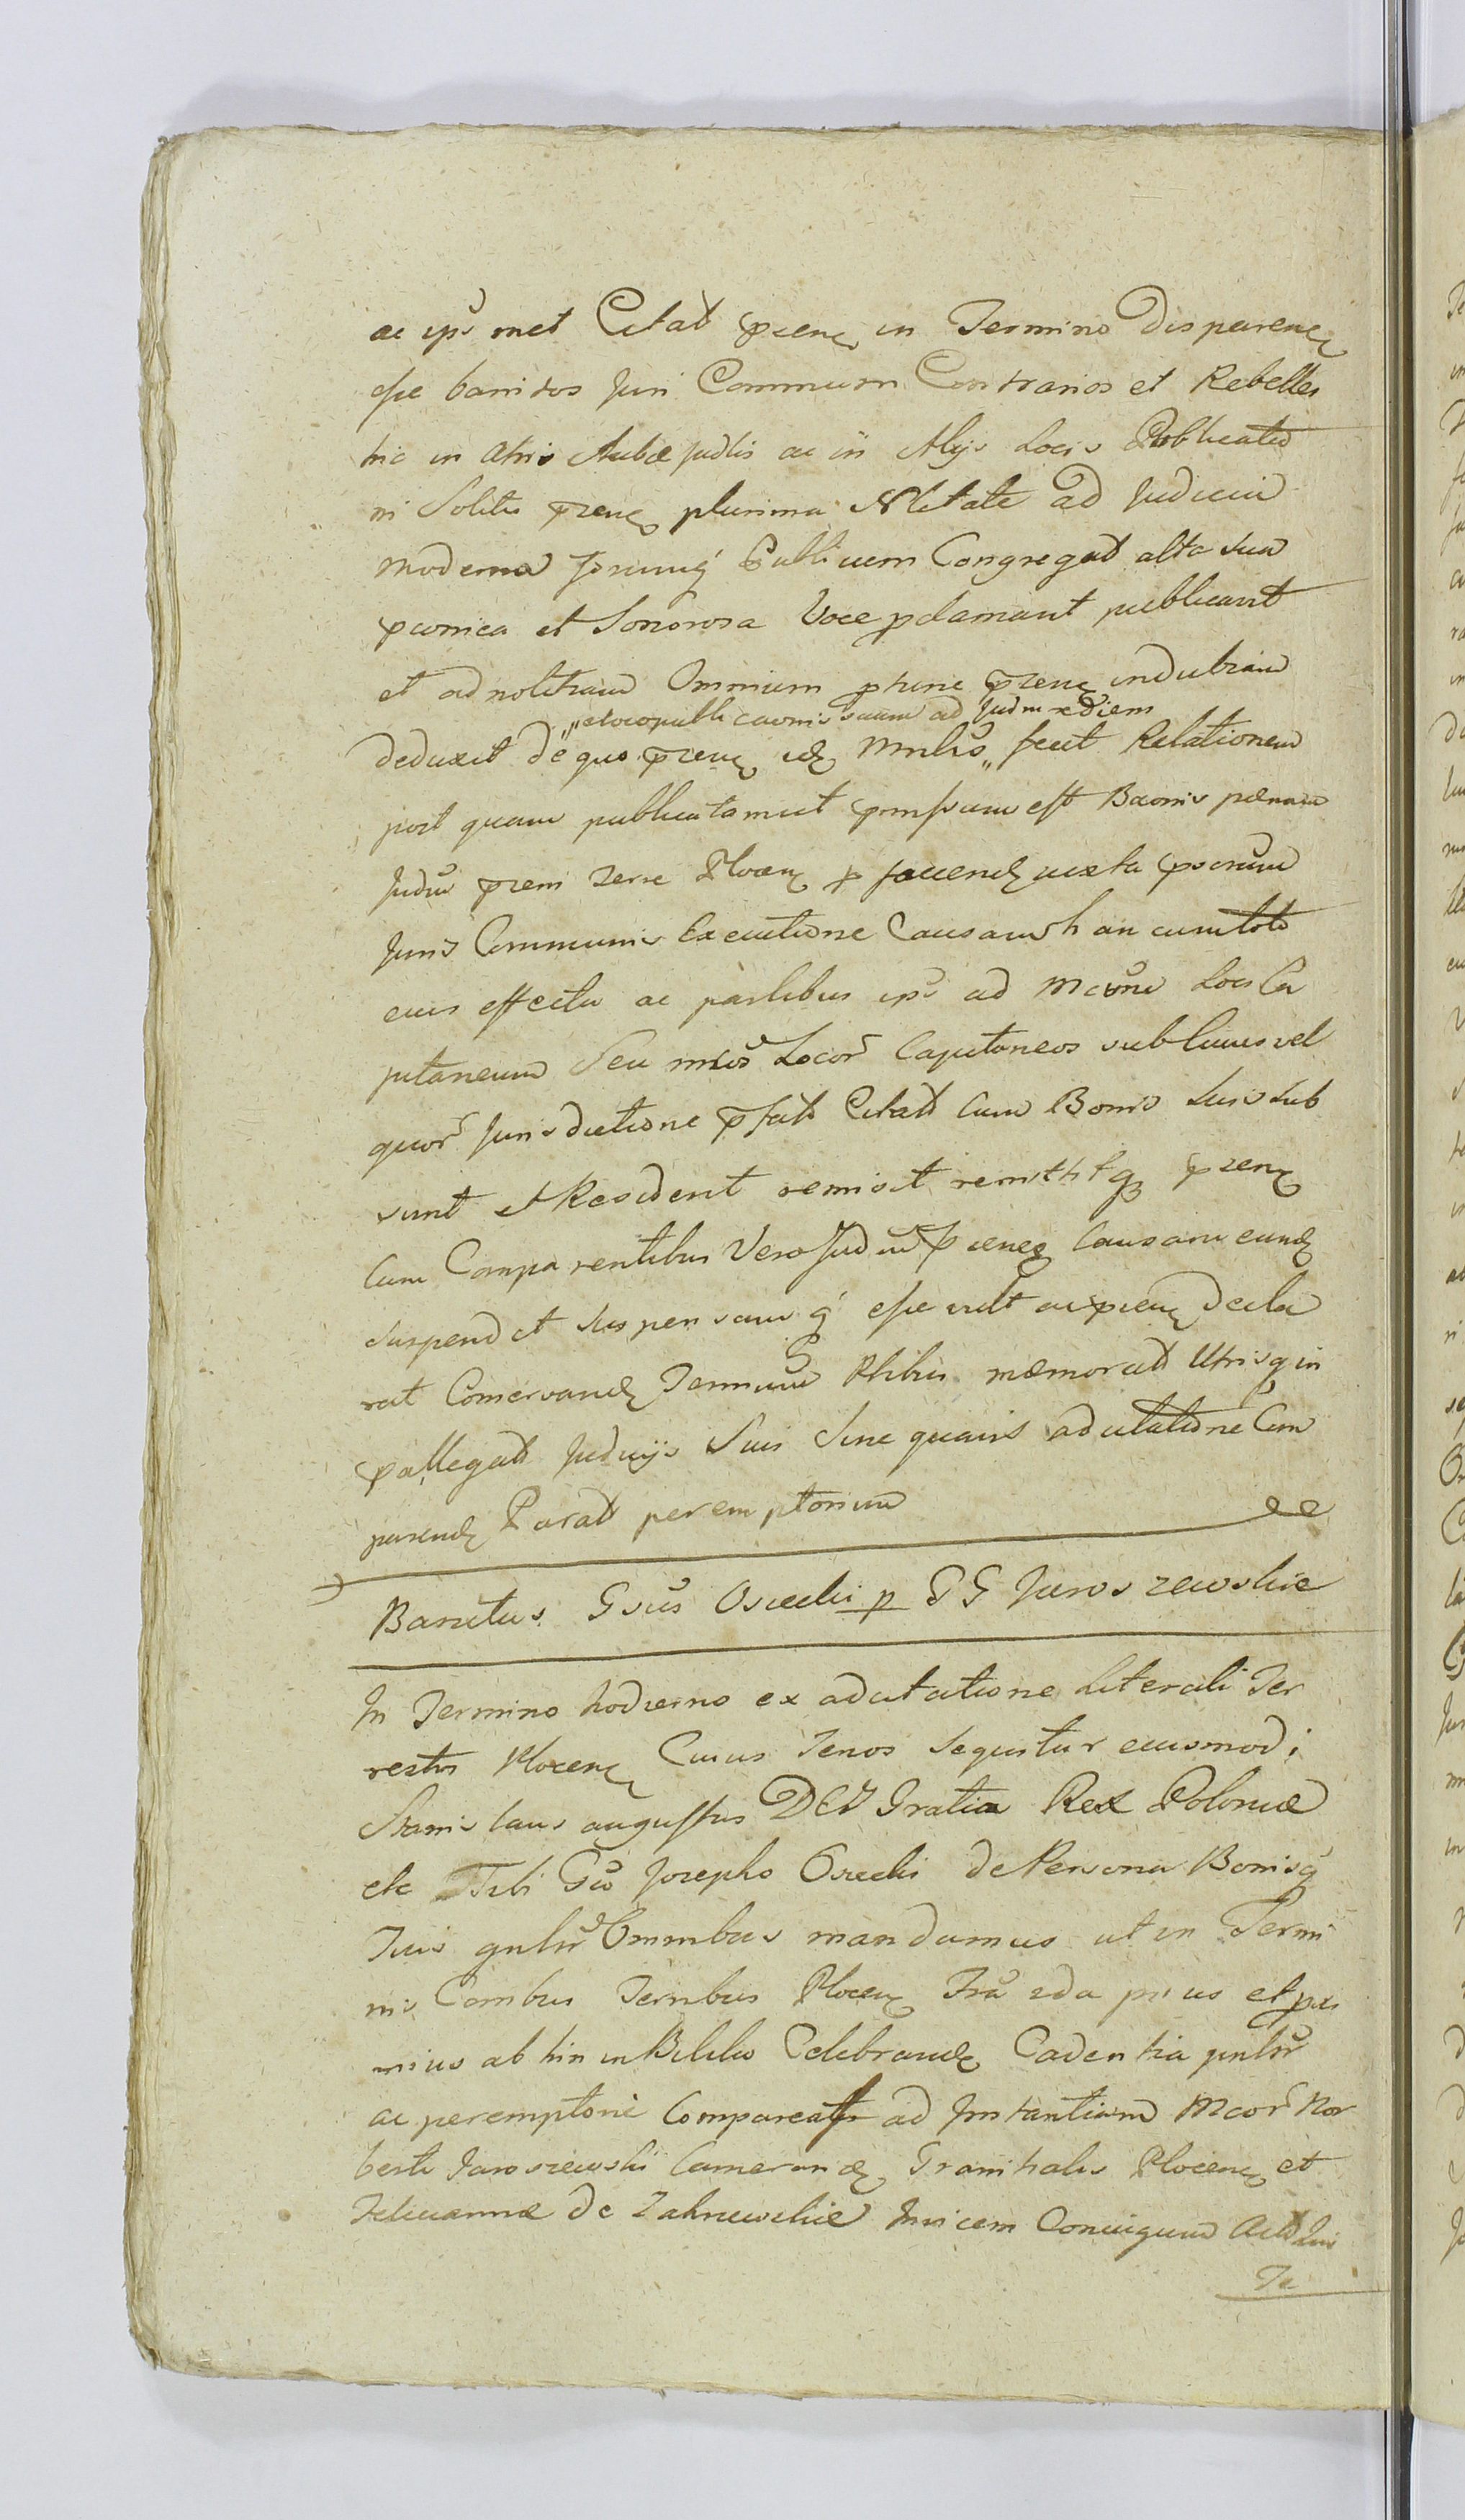 ac ips met Citat pnem in Termino Disparem
esse banitos Juri Communi Contrarios et Rebelles
hic in Atrio Aulæ Judlis ac in Alijs Locis Publicatio
ni Solitis pzem plurima Nbtate ad Judicia
moderna frumq Publicem Congregat alta sua
pconica et Sonorosa Voce pclamavit publicavit
et ad notitiam Omnium ptunc pzem indubiam
et de publicaonis suum ad Judm rediem
deduxit de quo pzem idem Mnlis fecit Relationem
post quam publicatam ut pmissum est Baonis pænam
Judm pzem Terre Plocen p faciend juxta psorum
Juris Communis Executione Causam han cum toto
eius effectu ac partibus ips ad Mcum Loci Ca
pitaneum Seu mcos Locor Capitaneos sub cuius vel
quor Jurisdictione pfati Citati Cum Bonis Suis sub
sunt et Resident remisit remittitq pzem
Cum Comparentibus Vero Judm pzens Causam eund
suspendit suspensamq esse vult ac pzem decla
rat Conservand Terminum Ptibus memorat Utrisq in
pallegat Judicijs Suis Sine quavis adcitatione Com
parend Parat peremptorium
Banitus Gsus Osiecki p GG Jaroszewskie
In Termino hodierno ex adcitatione Literali Ter
restri Plocen Cuius Tenor Sequitur eiusmodi
Stanislaus augustus DEI Gratia Rex Poloniæ
etc Tibi Gso Josepho Osiecki de Persona Bonisq
Tuis gnlr Omnibus mandamus ut in Termi
nis Conibus Terribus Plocen Fra 2da prius et pxi
mius ab hin in Bilsko Celebrand Cadentia pnlr
ac peremptorie Compareas ad Instantiam Mcor Nor
berti Jaroszewski Camerarij Granitialis Plocen et
de Zakrzewskie Invicem Coniugum Act
Te